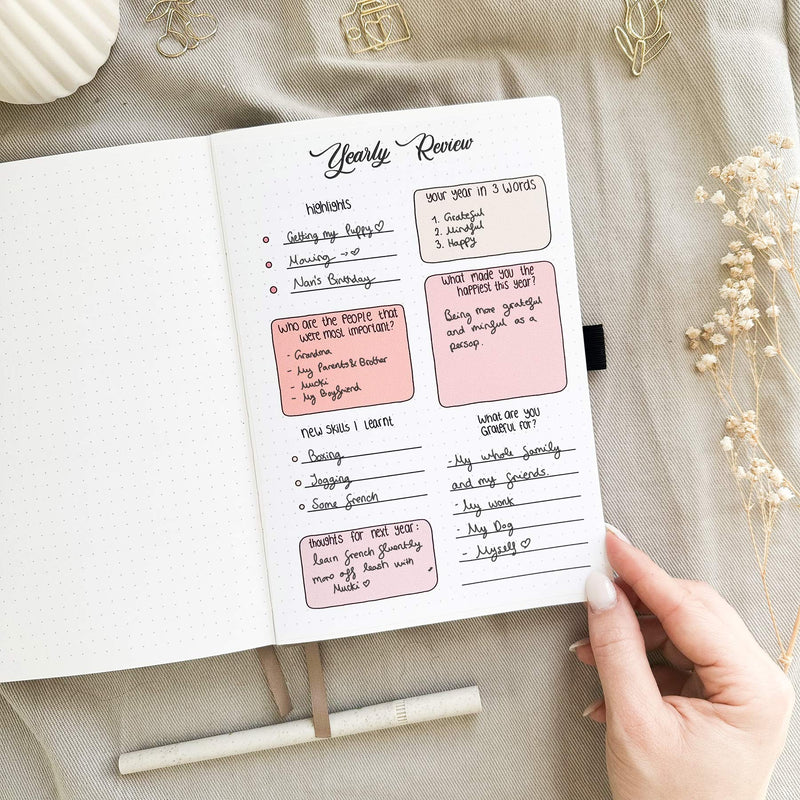 Yearly Review
highlights
Getting my Puppy♡
Moving →♡
Nan's Birthday
Who are the people that
were most important?
- Grandma
- My Parents & Brother
- Mucki
- My Boyfriend
new skills I learnt
Boxing
Jogging
Some french
thoughts for next year:
learn french fluently
more off leash with
Mucki ♡
your year in 3 words
1. Grateful
2. Mindful
3. Happy
What made you the
happiest this year?
Being more grateful
and minful as a
person.
What are you
Grateful for?
- My whole family
and my friends.
- My work
- My Dog
- Myself ♡